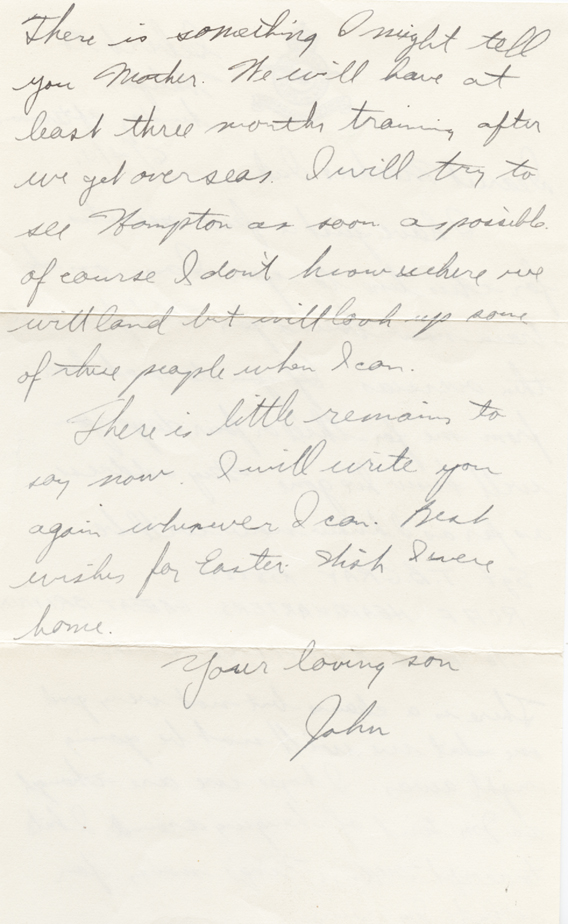 There is something I might tell
you Mother. We will have at
least three months training after
we get overseas. I will try to
see Hampton as soon as possible.
of course I don't know where we
will land but will look up some
of those people when I can.
There is little remains to
say now. I will write you
again whenever I can. Best
wishes for Easter. Wish I were
home.
Your loving son
John